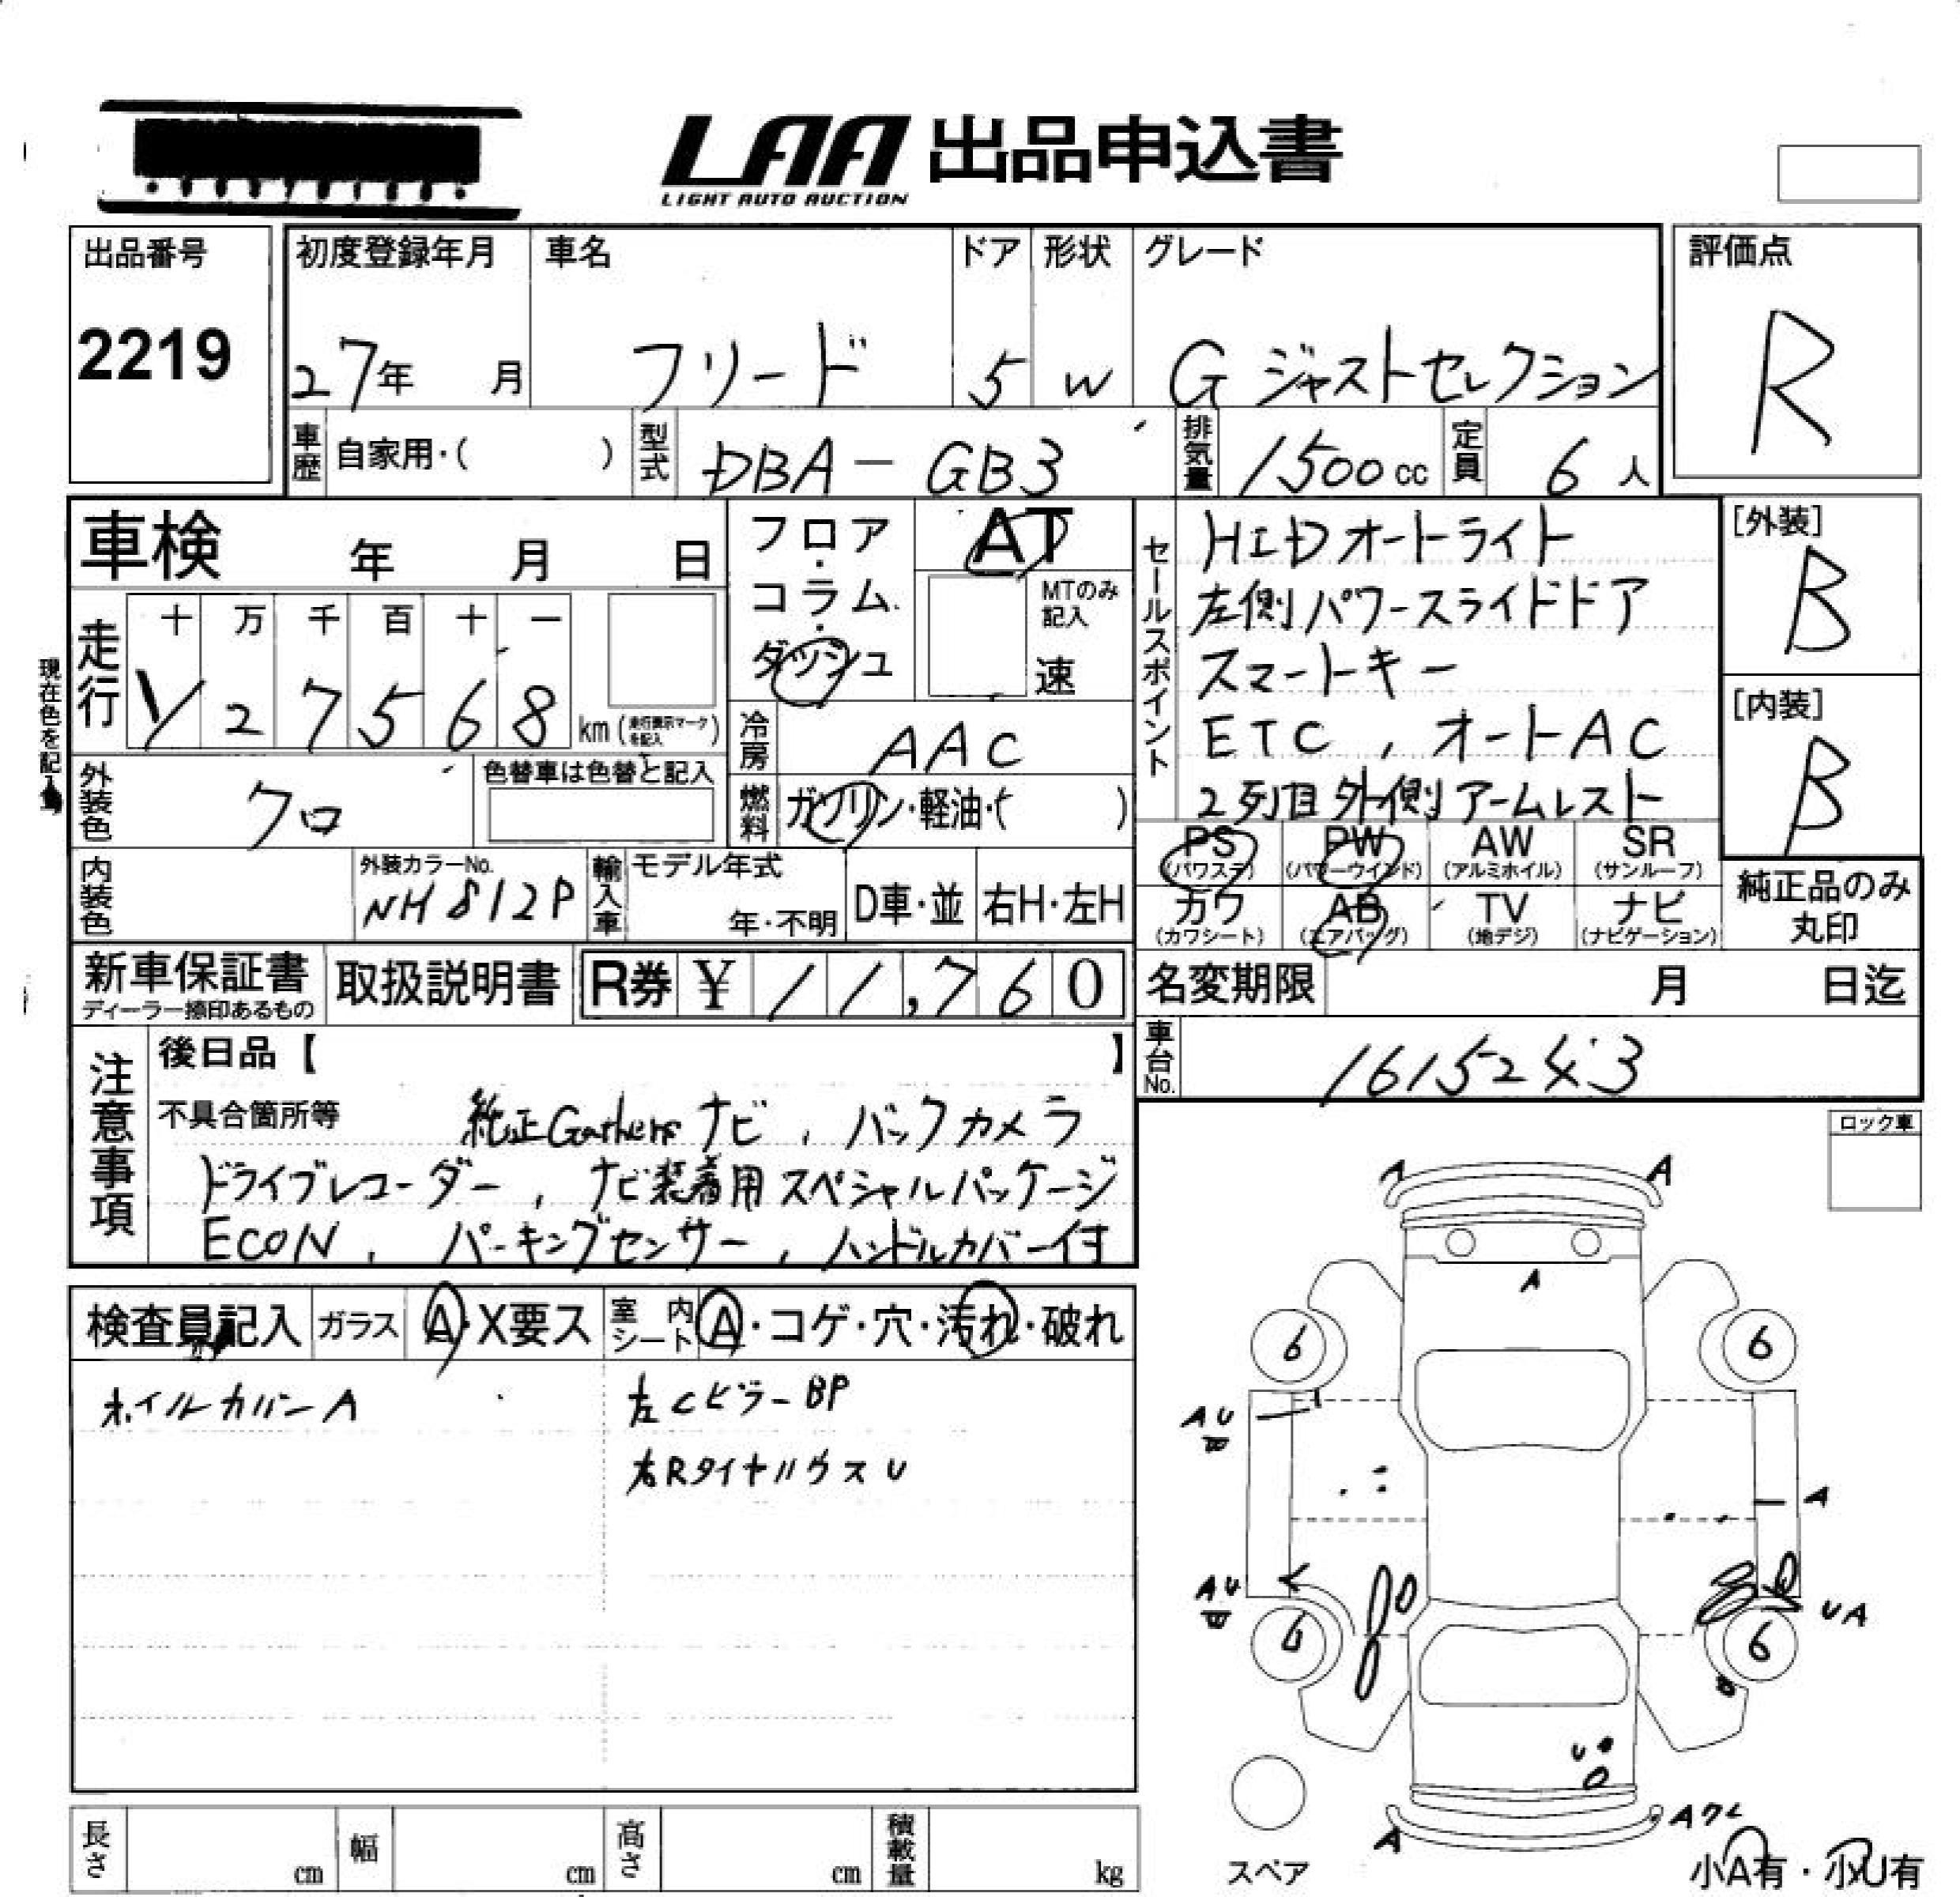 LAA 出品申込書
LIGHT AUTO AUCTION
出品番号
2219
初度登録年月
27年 月
車名
フリード
ドア
5
形状
W
グレード
G ジャストセレクション
評価点
R
車歴 自家用・( )
型式 DBA-GB3
排気量 1500cc
定員 6人
車検 年 月 日
フロア・コラム・ダッシュ
AT
MTのみ記入
速
セールスポイント
HIDオートライト
左側パワースライドドア
スマートキー
ETC, オートAC
2列目外側アームレスト
[外装]
B
[内装]
B
現在色を記入
走行
十 万 千 百 十 一
1 2 7 5 6 8 km (走行表示マークを記入)
冷房 AAC
外装色 クロ
色替車は色替と記入
燃料 ガソリン・軽油・( )
PS (パワステ) PW (パワーウインド) AW (アルミホイル) SR (サンルーフ)
カワ (カワシート) AB (エアバッグ) TV (地デジ) ナビ (ナビゲーション)
純正品のみ丸印
内装色
外装カラーNo.
NH812P
輸入車
モデル年式
年・不明
D車・並
右H・左H
新車保証書
ディーラー捺印あるもの
取扱説明書
R券 ¥11,760
名変期限 月 日迄
車台No. 1615243
注意事項
後日品【 】
不具合箇所等
純正Gathersナビ, バックカメラ
ドライブレコーダー, ナビ装着用スペシャルパッケージ
ECON, パーキングセンサー, ハンドルカバー付
ロック車
検査員記入 ガラス A・X要ス 室内シート A・コゲ・穴・汚れ・破れ
ホイルカバーA
左CピラーBP
右RタイヤハウスU
A A
A
6 6
AU
A
AU
UA
6 6
U
Aワレ
A
スペア
小A有・小U有
長さ cm 幅 cm 高さ cm 積載量 kg